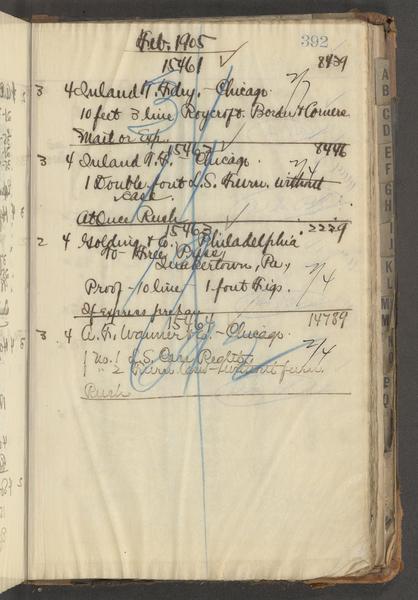 Feb. 1905
392
15461 8439
3 4 Inland T. Fdry. - Chicago. 2/7
10 feet 3 line Roycroft Border & Corners
Mail or Exp.
15462 8446
3 4 Inland T. F. - Chicago. 2/4
1 Double font L.S. Furn. without
case.
At Once Rush
15463 2229
2 4 Golding & Co., Philadelphia
To - Free Press,
Quakertown, Pa., 2/4
Proof - 10 line - 1 font Fig.
If express prepay
15464 14789
3 4 A. F. Wanner & Co. - Chicago. 2/4
1 No. 1 L.S. Case Reglet
1 " 2 Furn. Case - without furn.
Rush
A
B
C
D
E
F
G
H
I
J
K
L
M
N
O
P
Q